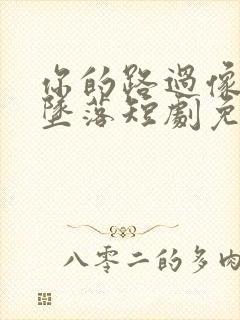 你的路過像
墜落短劇免
八零二的多肉